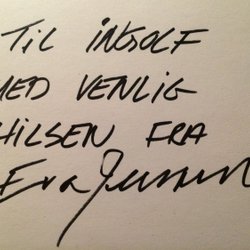 TIL INGOLF
MED VENLIG
HILSEN FRA
Eva